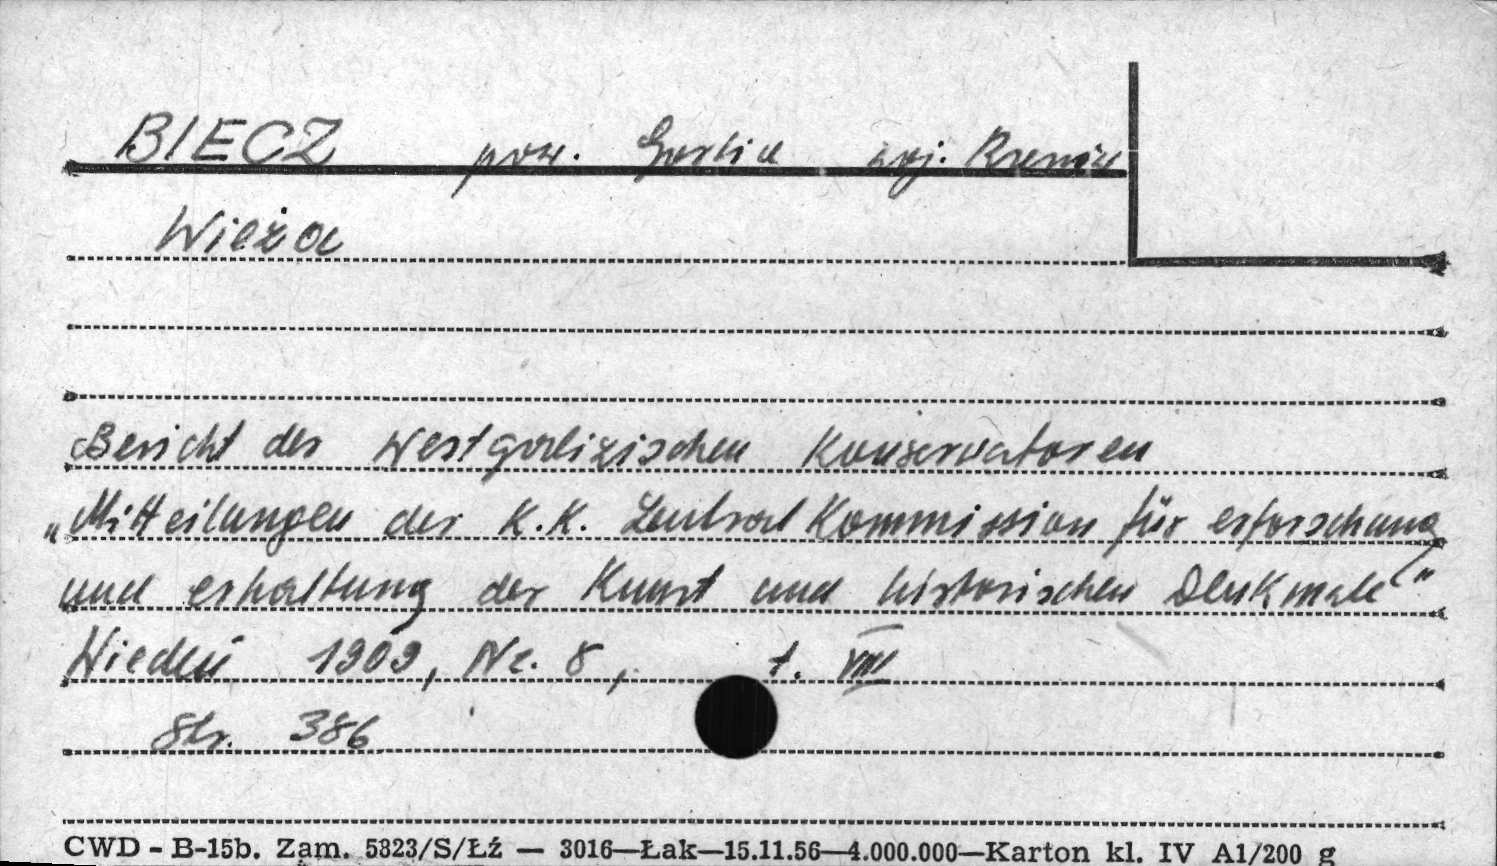 BIECZ pow. Gorlice woj. Rzeszów
Wieża
Bericht der Westgalizischen Konservatoren
„Mitteilungen der K.K. Zentral Kommission für erforschung
und erhaltung der Kunst und historischen Denkmale"
Wiedeń 1909, Nr. 8, t. VIII
Str. 386
CWD - B-15b. Zam. 5323/S/Łź — 3016—Łak—15.11.56—4.000.000—Karton kl. IV A1/200 g